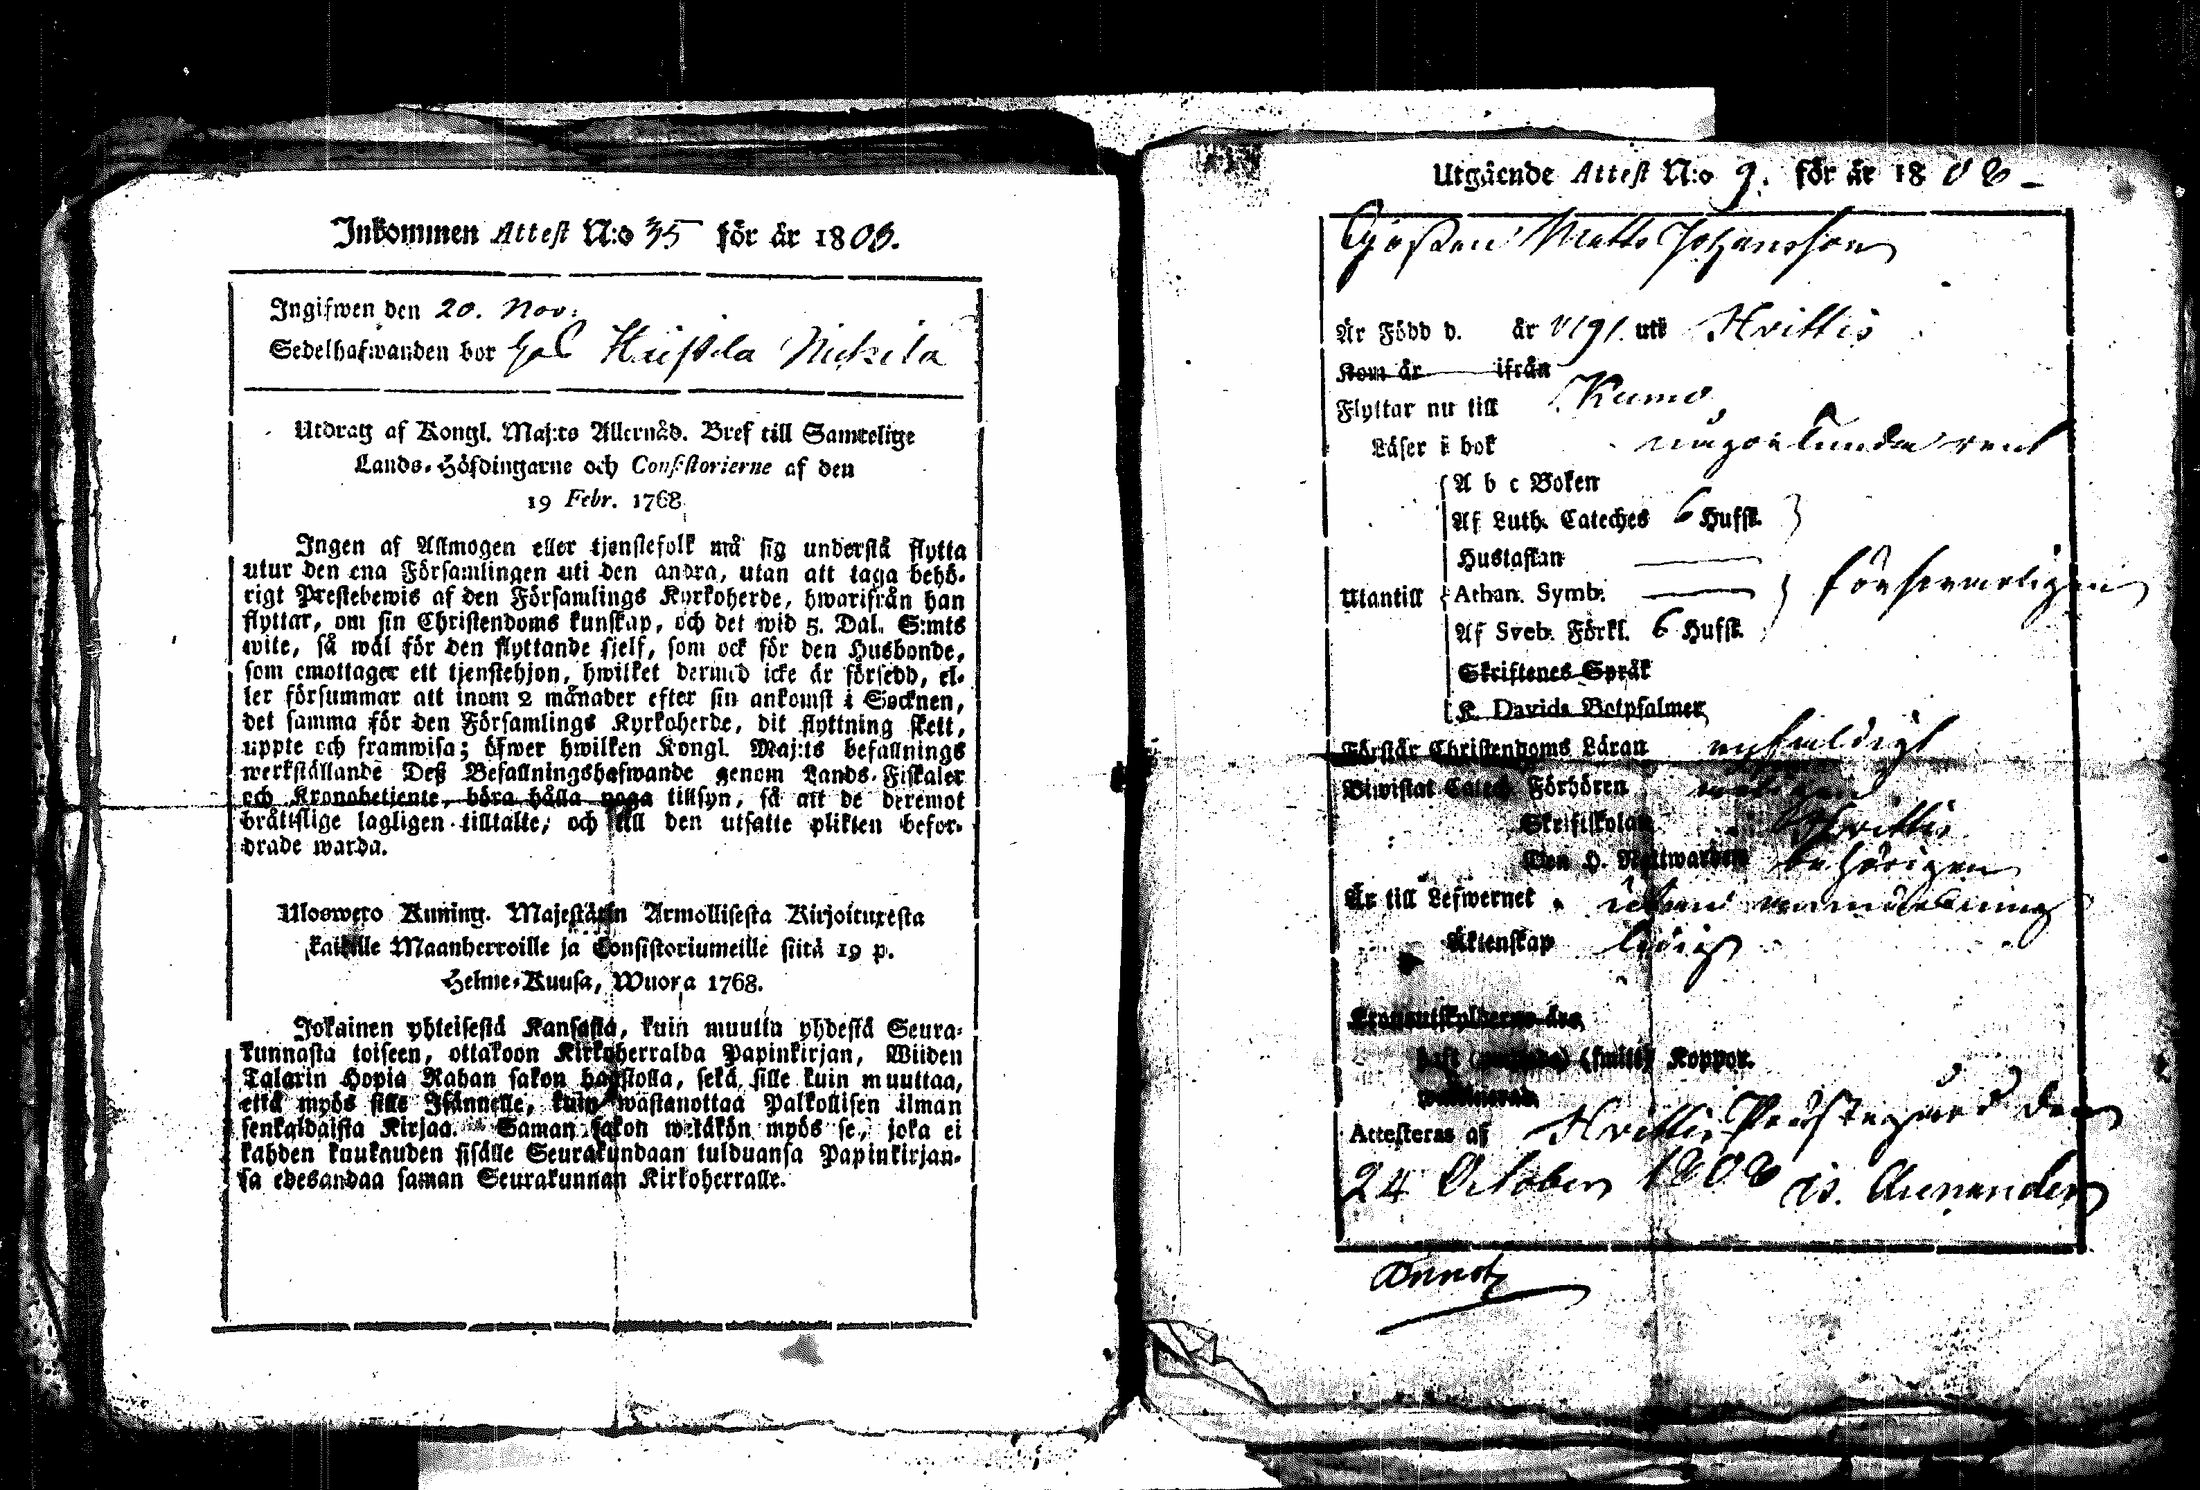 Inkommen Attest N:o 35 för år 1808.
Ingifwen den 20. Nov:
Sedelhafwanden bor hos
Utdrag af Kongl. Maj:ts Allernåd. Bref till Samtelige
Lands-Höfdingarne och Consistorierne af den
19 Febr. 1768
Ingen af Allmogen eller tjenstefolk må sig understå flytta
utur den ena Församlingen uti den andra, utan att taga behö-
rigt Prestebewis af den Församlings Kyrkoherde, hwarifrån han
flyttar, om sin Christendoms kunskap, och det wid 5. Dal. S:mts
wite, så wäl för den flyttande sjelf, som ock för den Husbonde,
som emottager ett tjenstehjon, hwilket dermed icke är försedd, el-
ler försummar att inom 2 månader efter sin ankomst i Socknen,
det samma för den Församlings Kyrkoherde, dit flyttning skett,
uppte och framwisa; öfwer hwilken Kongl. Maj:ts befallnings
werkställande Deß Befallningshafwande genom Lands-Fiskaler
och Kronobetjente, böra hålla noga tillsyn, så att de deremot
bråttslige lagligen tilltalte, och till den utsatte plikten befor-
drade warda.
Ulosweto Kuning. Majestätin Armollisesta Kirjoituxesta
kaikille Maanherroille ja Consistoriumeille siitä 19 p.
Helme-Kuusa, Wuona 1768.
Jokainen yhteisestä Kansasta, kuin muutta yhdestä Seura-
kunnasta toiseen, ottakoon Kirkoherralda Papinkirjan, Wiiden
Talarin Hopia Rahan sakon haastolla, sekä sille kuin muuttaa,
että myös sille Isännelle, kuin wastanottaa Palkollisen ilman
senkaldaista Kirjaa. Saman sakon wetäkön myös se, joka ei
kahden kuukauden sisälle Seurakundaan tulduansa Papinkirjan-
sa edesandaa saman Seurakunnan Kirkoherralle.
Utgående Attest N:o 9. för år 1808
Gossen Matts Johansson
Är Född d. år 1791. uti Hvittis
Kom år ifrån
Flyttar nu till Kumo,
Läser i bok någorlunda rent
A b c Boken
Af Luth. Cateches 6 Hufst.
Hustaflan
Utantill Athan. Symb. försvarligen
Af Sveb. Förkl. 6 Hufst.
Skriftenes Språk
K. Davids Botpsalmer
Förstår Christendoms Läran enfaldigt
Biwistat Catech. Förhören
Skriftskolan Hvittis
Den H. Nattwarden behörigen
Är till Lefwernet utan anmärkning
Äktenskap ledig
Kronoutskylderne äro
haft (naturliga) (smitt) Koppor.
waccinerad.
Attesteras af Hvittis Prästegård den
24 October 1808 Is. Avenander